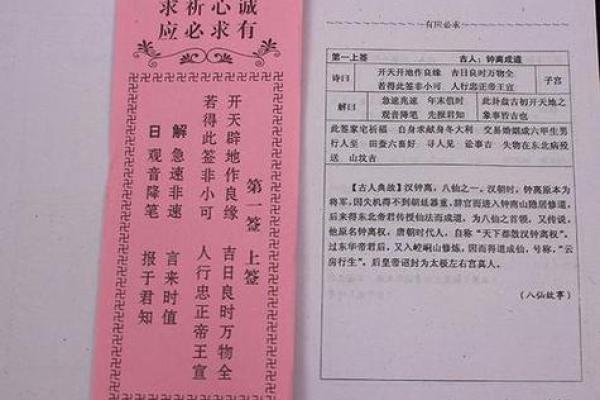 诚心祈求
有求必应
第一签 上签
开天辟地作良缘 吉日良时万物全
若得此签非小可 人行忠正帝王宣
解 急速非速 言来时值
日 观音降笔 报于君知
有应必求
第一上签 古人：钟离成道
诗曰 开天开地作良缘 吉日良时万物全 子宫
若得此签非小可 人行忠正帝王宣
解曰 急速兆速 年末值时 此卦盘古初开天地之
观音降笔 先报君知 象事皆吉也
此签家宅祈福 自身求献身冬大利 交易婚姻成六甲生男
行人至 田蚕六畜好 寻人见 讼事吉 失物在东北病投
送 山坟吉
【古人典故】汉钟离，八仙之一。汉朝时，钟离原本为
将军，因失机得不到朝廷器重，辞官而进入钟南山隐居修道，
后来得东北帝君传授仙法而成道，为八仙之首领，又传说，
他原名钟离权，唐朝时代人，自称“天下都散汉钟离权”。
过东华帝君后，又入崆峒山修炼，因而得道成仙，号称，“云
房行生”。后皇帝诏封为太极左右宫真人。
（八仙故事）